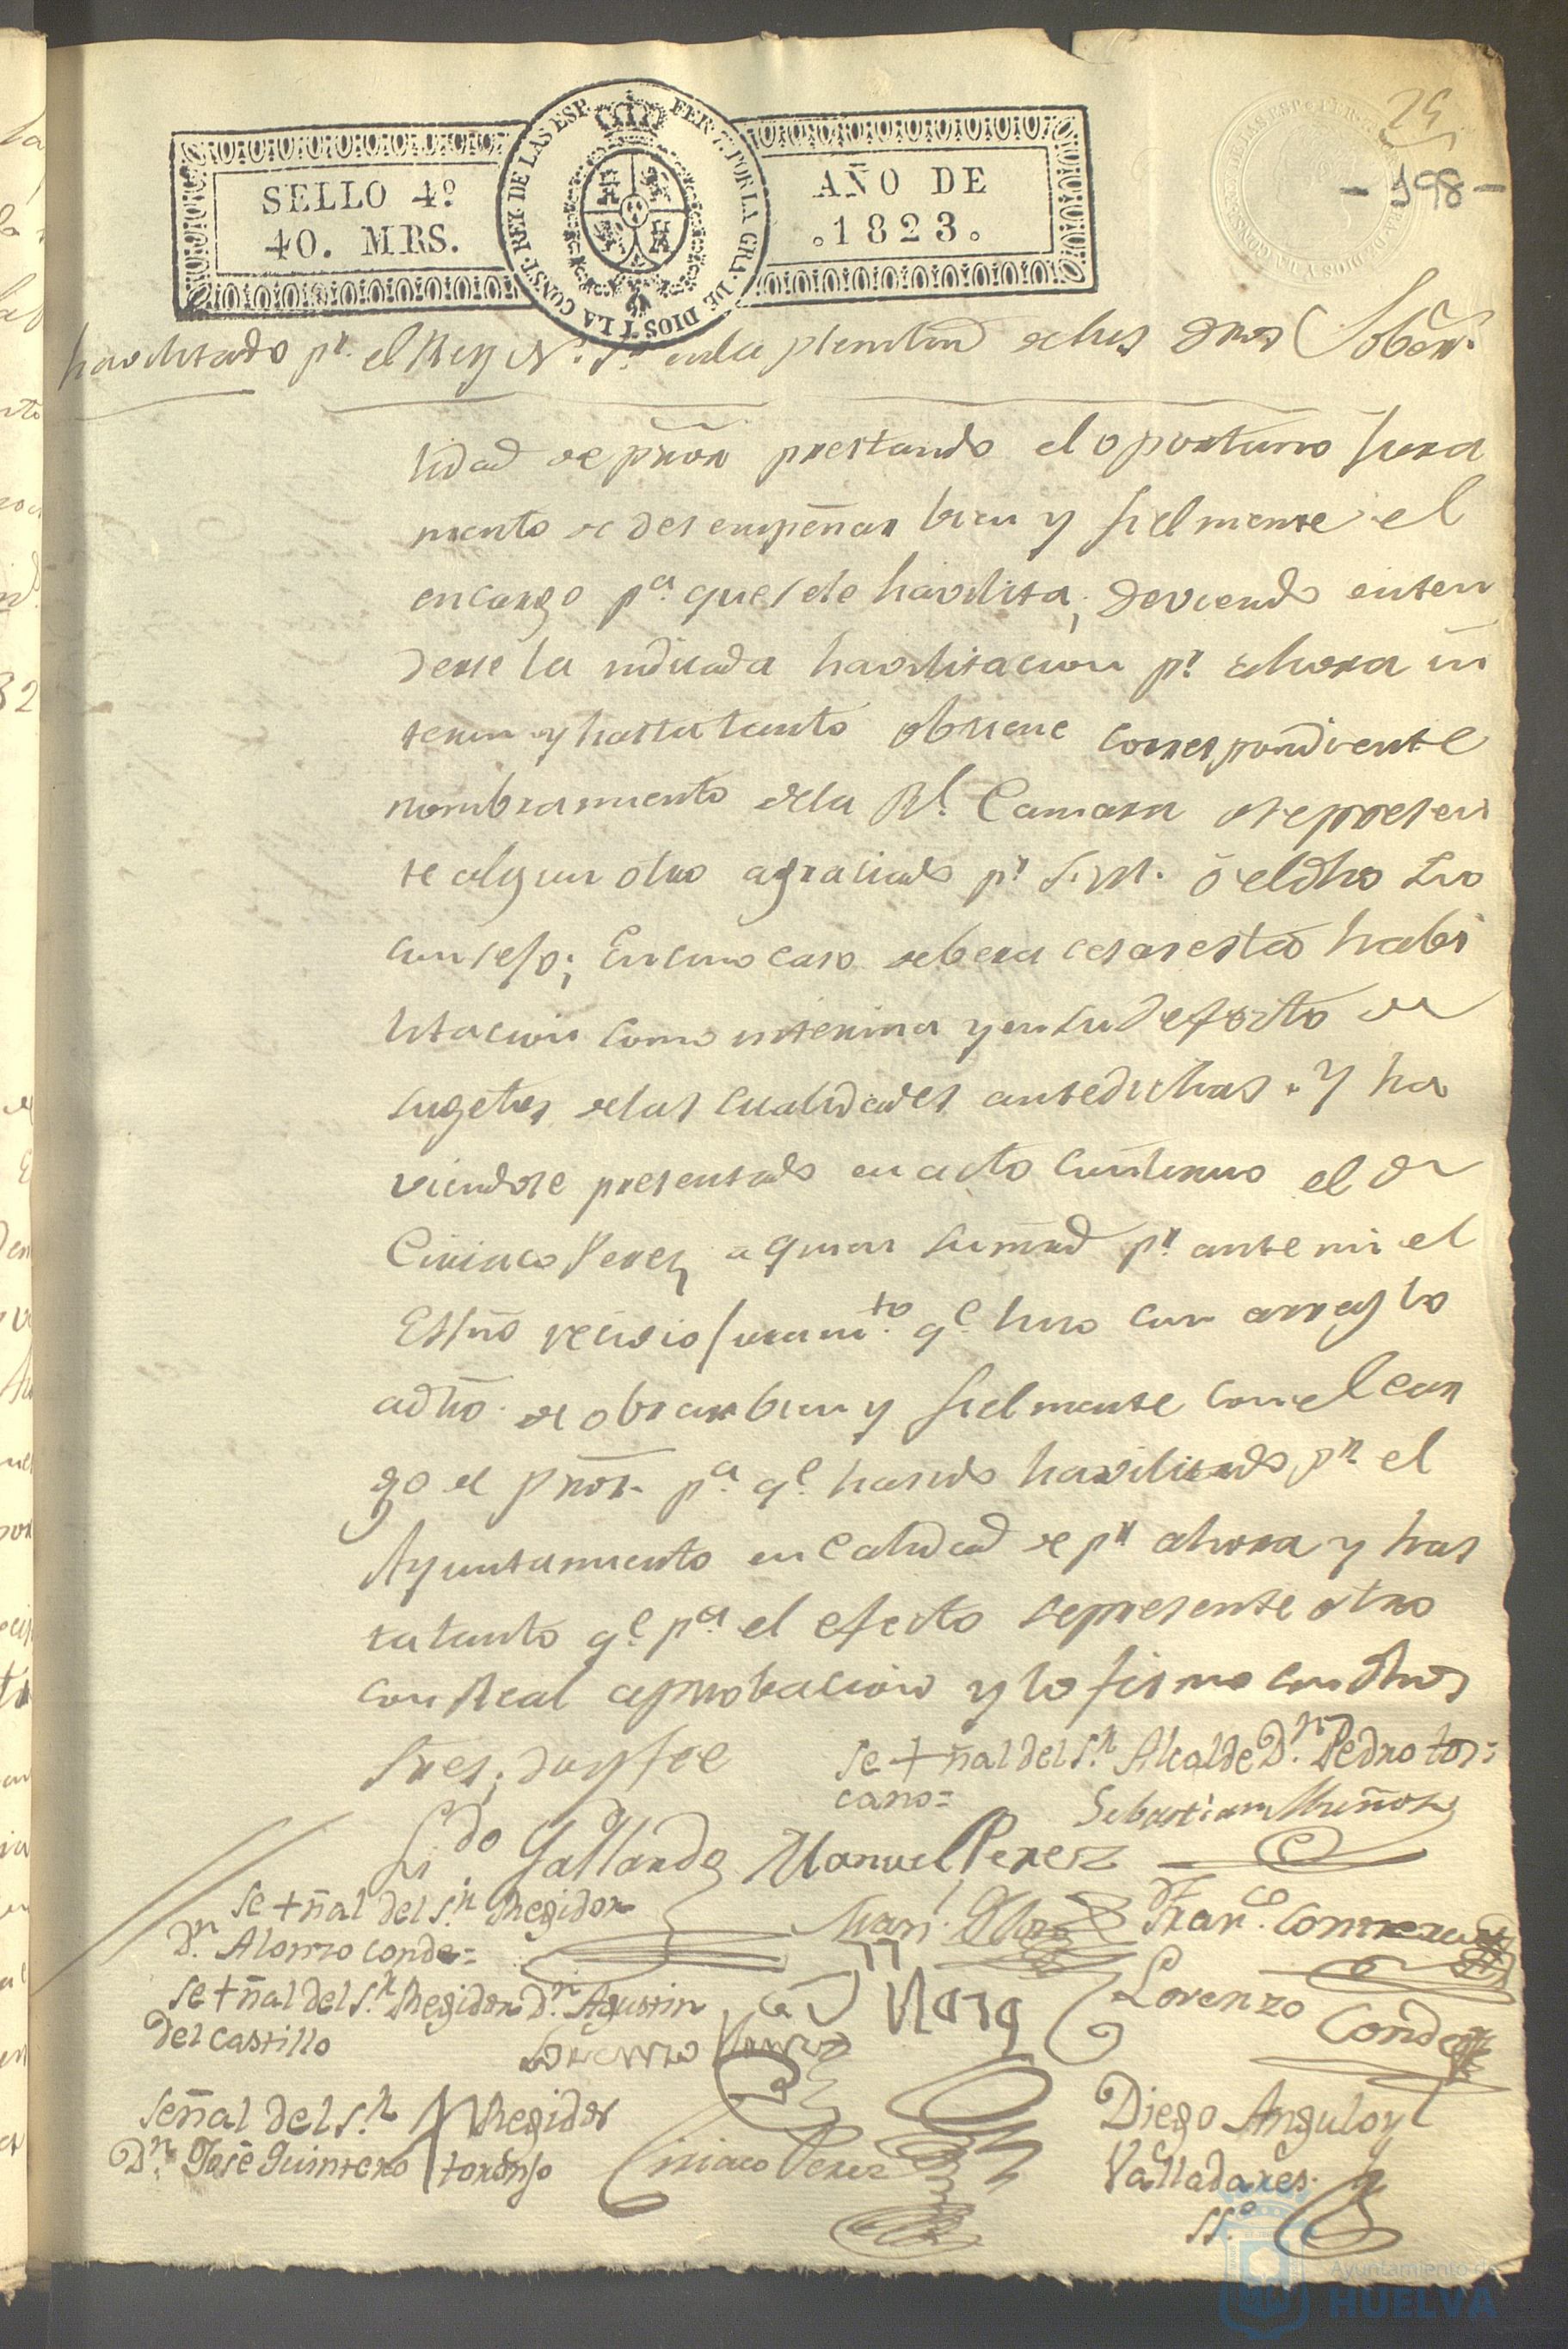 25
- 198 -
SELLO 4º
40. MRS.
FER. 7. POR LA GRA. DE DIOS Y LA CONST. REY. DE LAS ESP.
AÑO DE
1823.
havilitado pr. el Rey N. S. enla plenitud delus dros Sobers.
lidad de pror prestando el oportuno Jura
mento de desempeñar bien y fielmente el
encargo pa. que sele havilita; deviendo enten
derse la indicada havilitacion pr. ahora in
terin y hasta tanto obtiene correspondiente
nombramiento dela Rl. Camara osepresen
te algun otro agraciado pr S.M. ó el dho
; En cuio caso debera cesar esta habi
litacion como interina y en su defecto
sugetos delas cualidades antedichas. Y ha
viendose presentado en acto continuo el dn
Ciriaco Perez a quien su mrd pr. ante mi el
Essno recivio juramto. qe. hizo con arreglo
adro. de obrar bien y fielmente con el car
go de pror. pa. qe. hasido havilitado pr el
Ayuntamiento en calidad de pr ahora y has
tatanto qe pa el efecto sepresente otro
con Real aprobacion y lo firmo con dhos
Sres; doy fee
se + ñal del Sr. Alcalde Dn. Pedro tos=
cano=
Sebastian Muñoz
Licdo Gallardo
Manuel Perez
se + ñal del Sr. Regidor
Dn. Alonzo conde=
Franco. Contreras
se + ñal del Sr. Regidor Dn. Agustin
del castillo
Lorenzo
Lorenzo Conde
señal del Sr. Regidor
Dn. José Quintero toronjo
Ciriaco Perez
Diego Angulo y
Valladares.
SSº
Ayuntamiento de
HUELVA